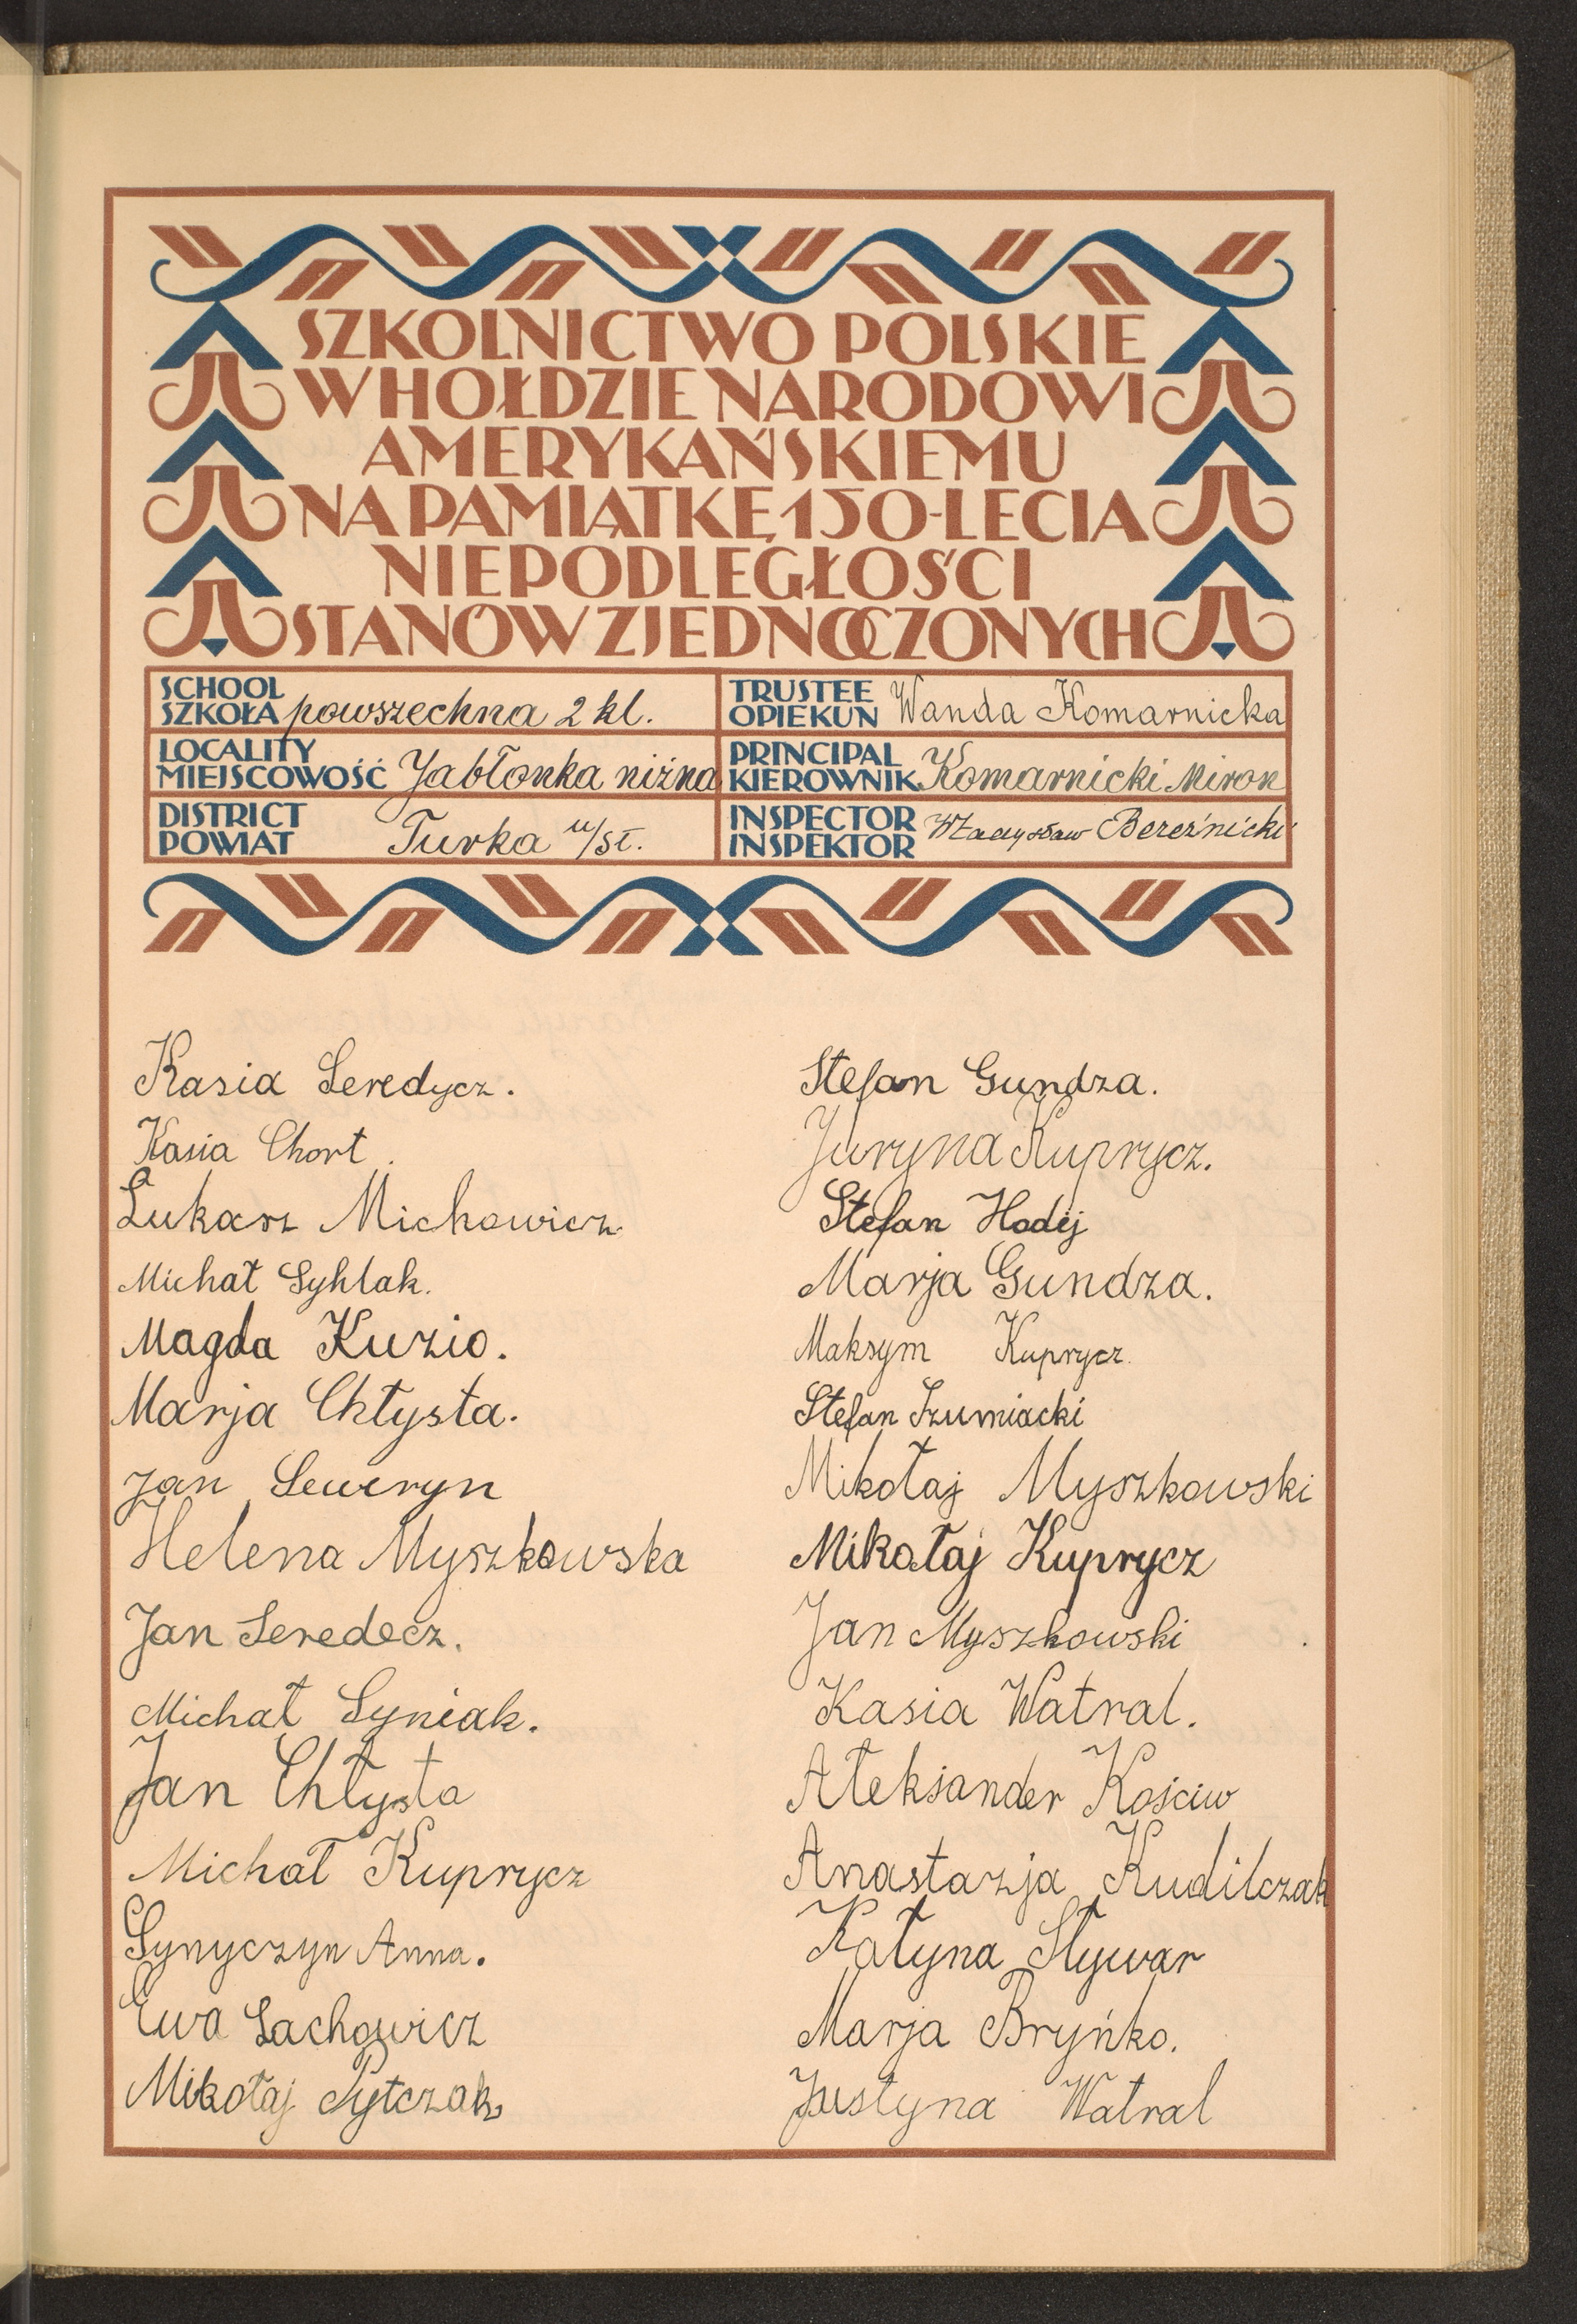 SZKOLNICTWO POLSKIE
W HOŁDZIE NARODOWI
AMERYKAŃSKIEMU
NA PAMIĄTKĘ 150-LECIA
NIEPODLEGŁOŚCI
STANÓW ZJEDNOCZONYCH
SCHOOL
SZKOŁA powszechna 2 kl.
TRUSTEE
OPIEKUN Wanda Komarnicka
LOCALITY
MIEJSCOWOŚĆ Jabłonka niżna
PRINCIPAL
KIEROWNIK Komarnicki Miron
DISTRICT
POWIAT Turka n/St.
INSPECTOR
INSPEKTOR Władysław Bereźnicki
Kasia Seredycz.
Kasia Chort.
Łukasz Michowicz.
Michał Syhlak.
Magda Kuzio.
Marja Chłysta.
Jan Seweryn
Helena Myszkowska
Jan Seredecz.
Michał Syniak.
Jan Chłysta
Michał Kuprycz
Synyczyn Anna.
Ewa Lachowicz
Mikołaj Pytczak
Stefan Gundza.
Juryna Kuprycz.
Stefan Hodij
Marja Gundza.
Maksym Kuprycz.
Stefan Szumiacki
Mikołaj Myszkowski
Mikołaj Kuprycz
Jan Myszkowski
Kasia Watral.
Ałeksander Kościw
Anastazja Kudilczak
Katyna Stywar
Marja Bryńko.
Justyna Watral